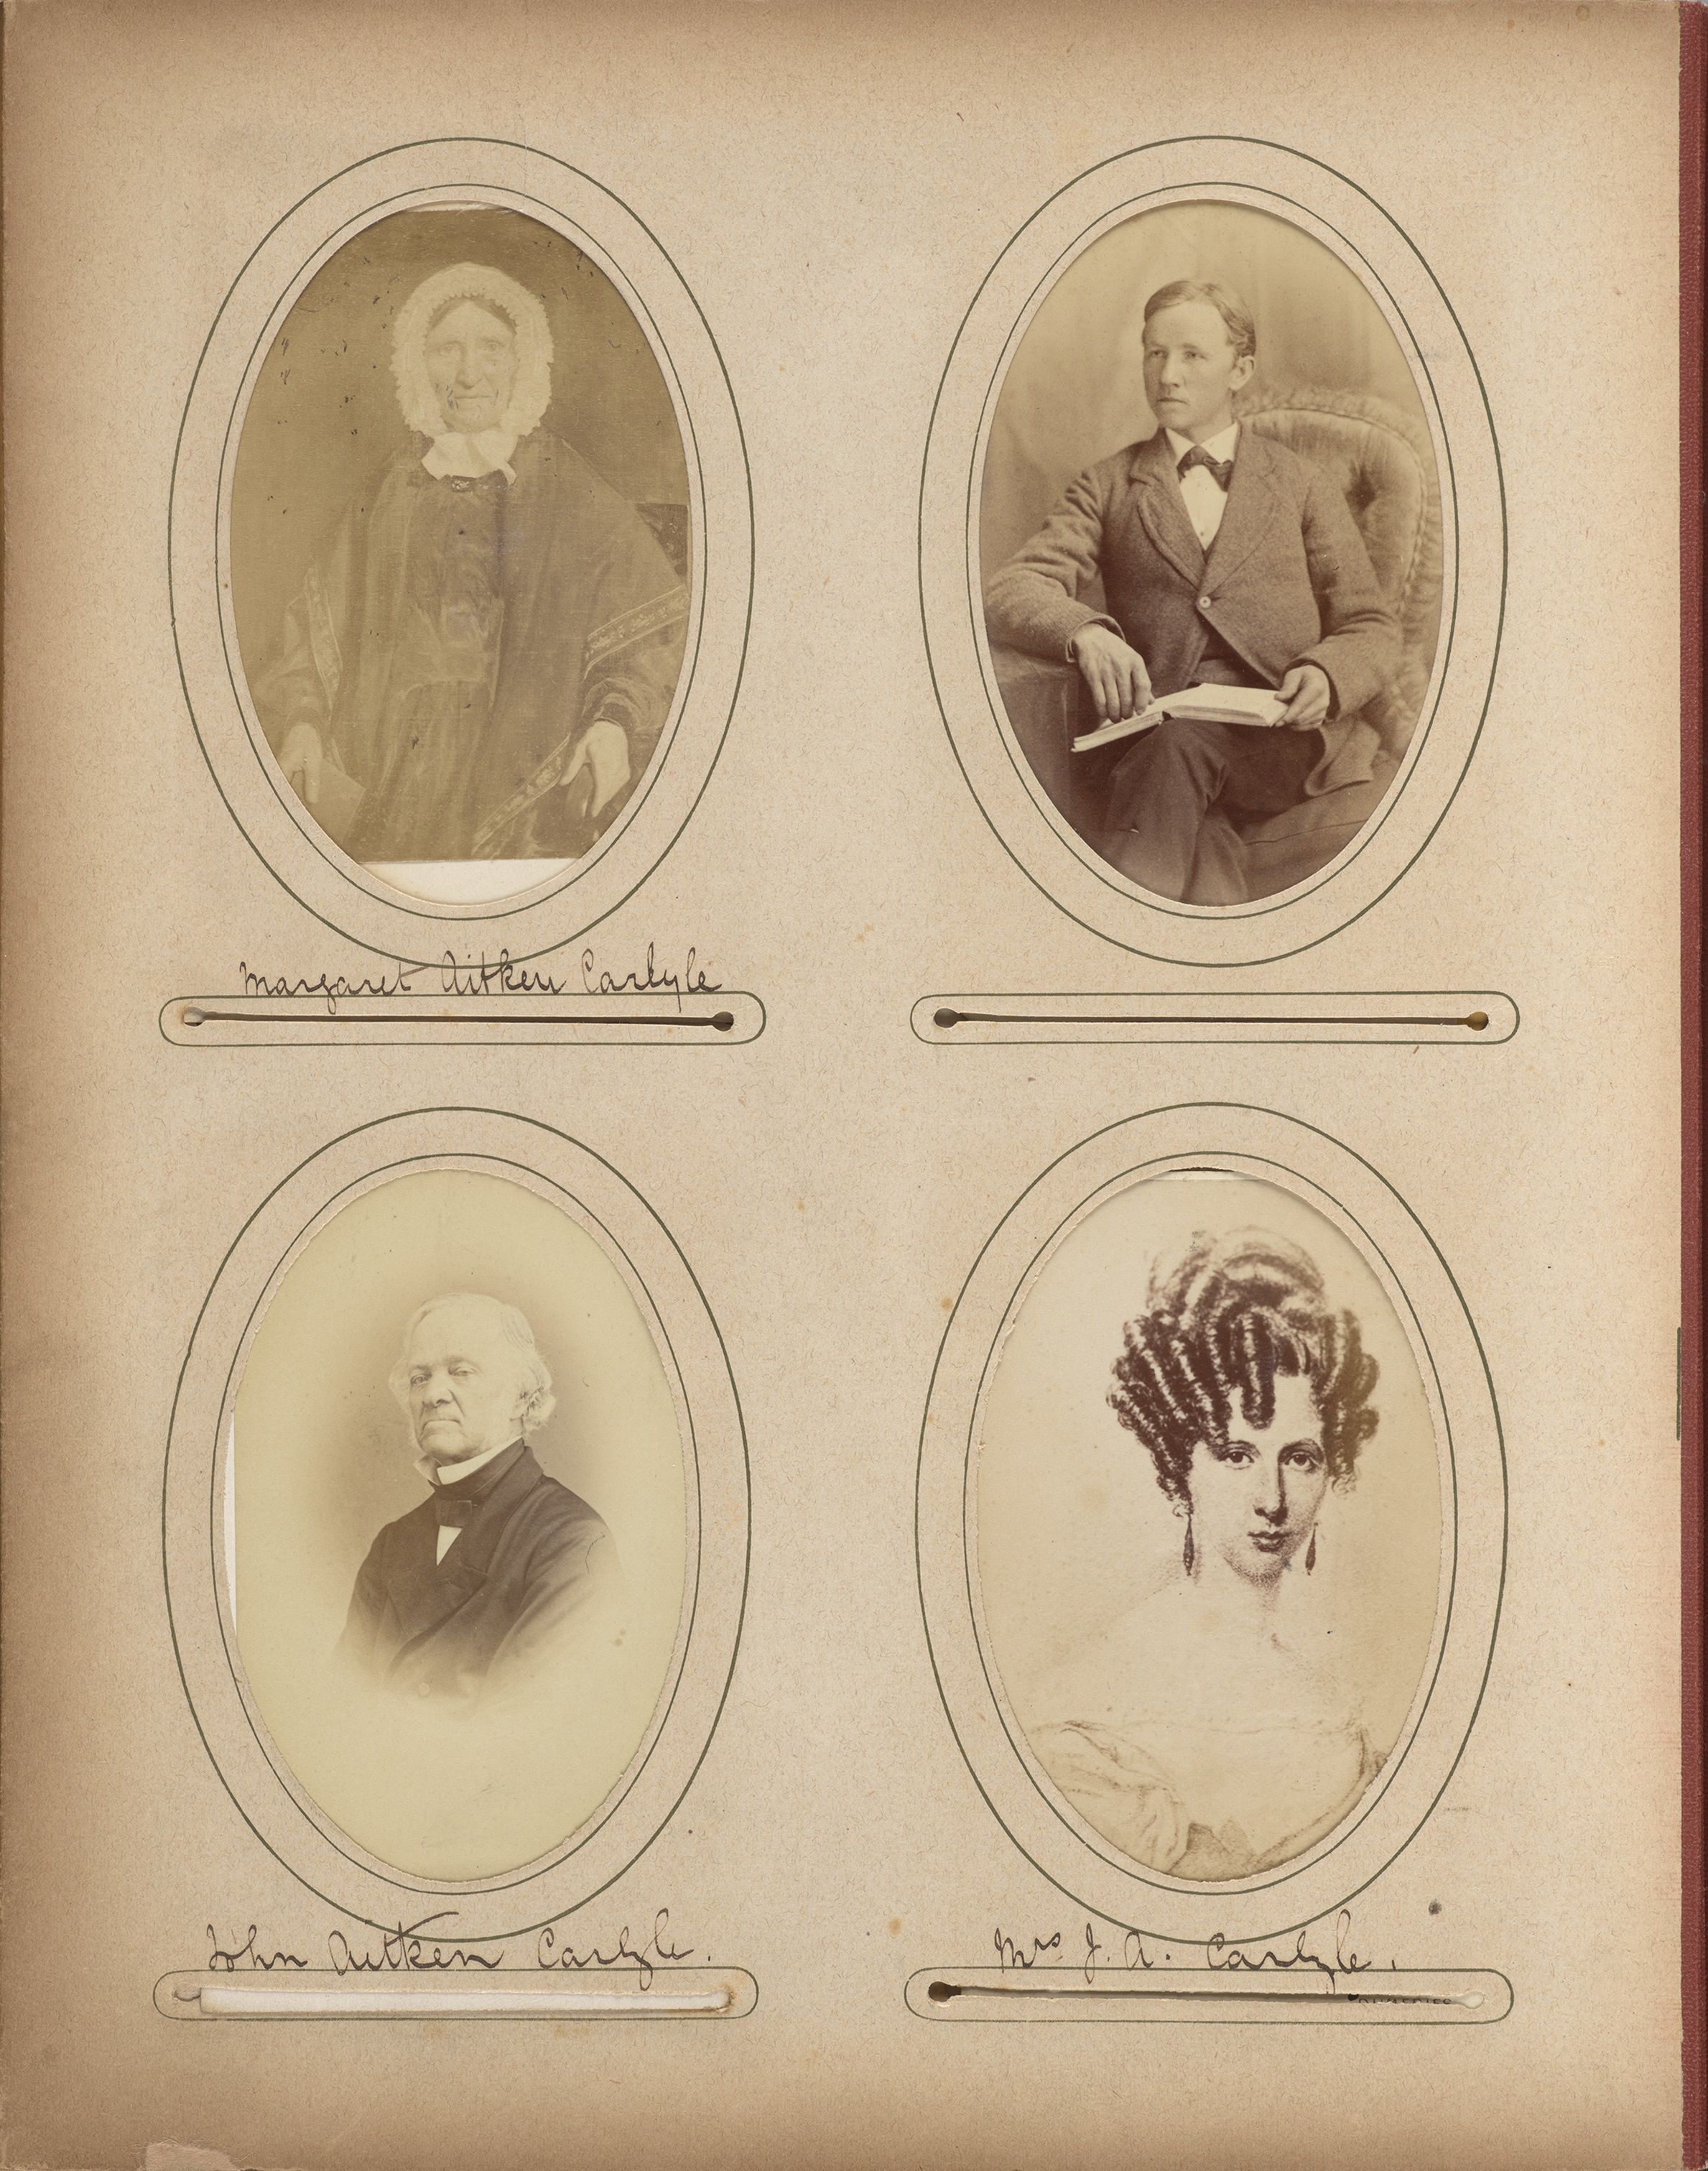 Margaret Aitken Carlyle
John Aitken Carlyle.
Mrs J. A. Carlyle.